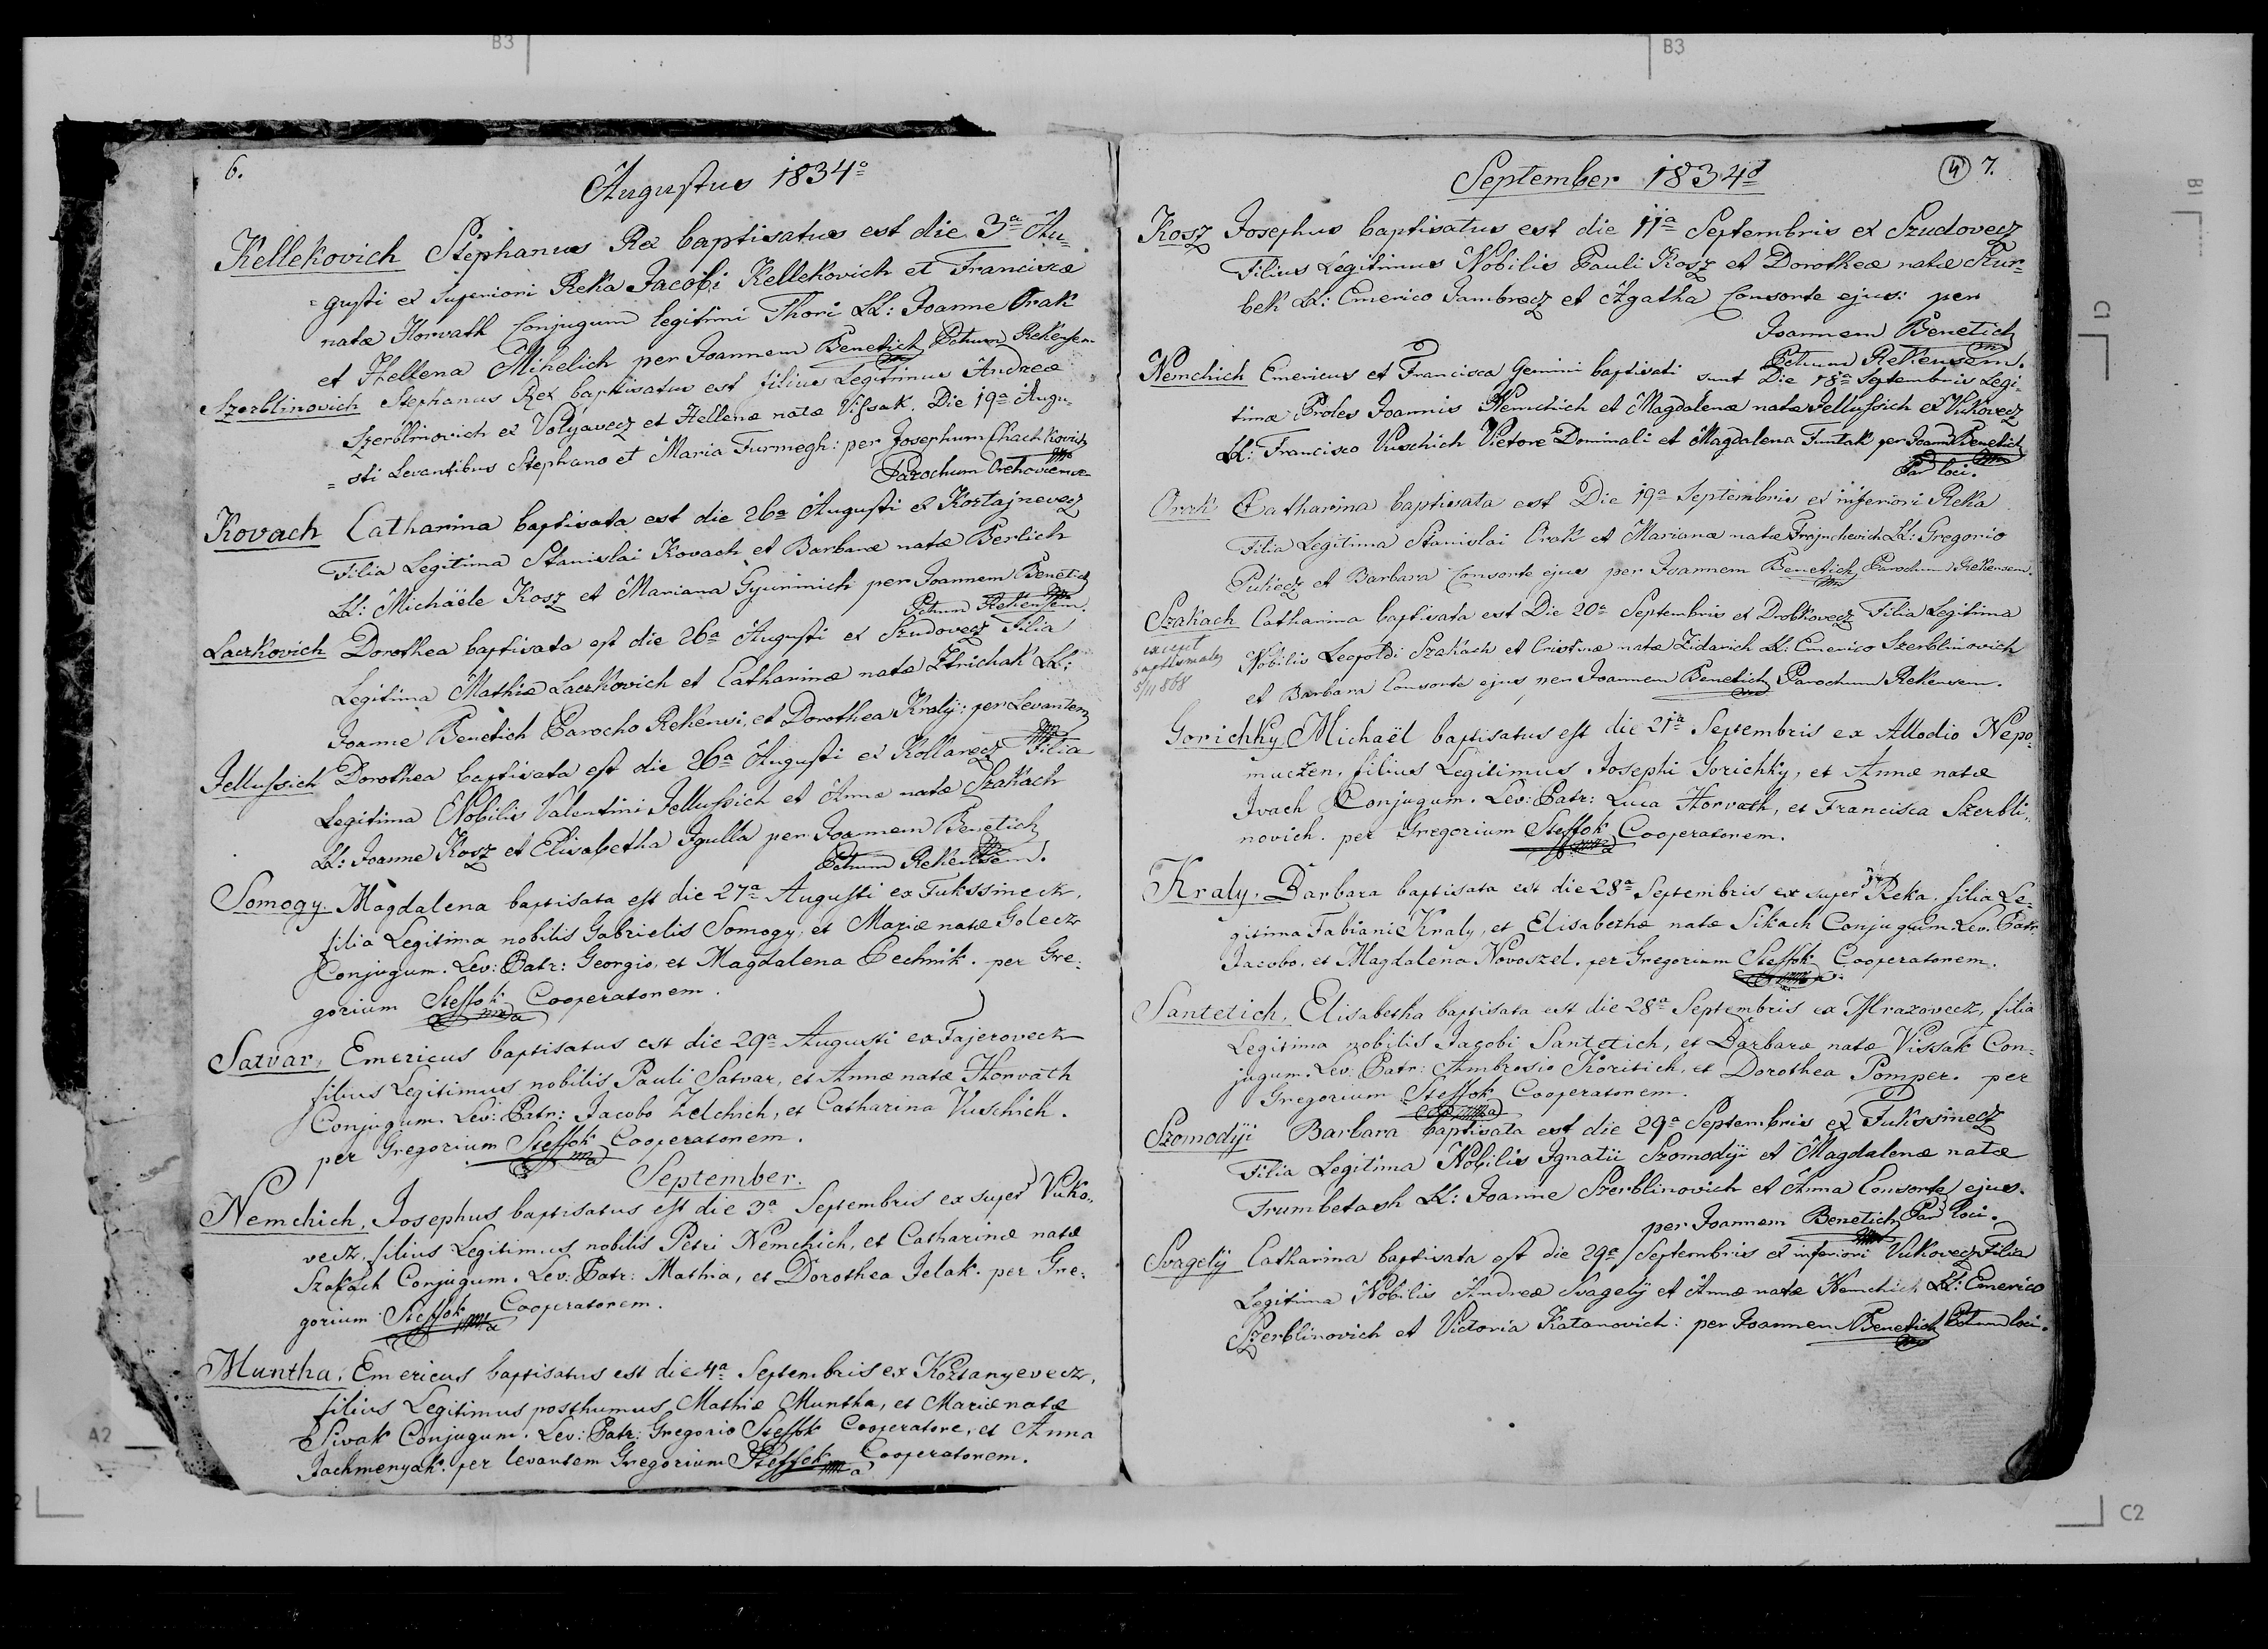 B3
B3
B1
C1
A2
C2
6.
Augustus 1834º
Kellekovich Stephanus Rex baptisatus est die 3ª Au=
=gusti ex Superiori Reka Jacobi Kellekovich et Franciscæ
natæ Horvath Conjugum legitimi Thori LL: Joanne Orak
et Hellena Mihelich per Joannem Benetich Pchum Rekensem
Szerblinovich Stephanus Rex baptisatus est filius Legitimus Andreæ
Szerblinovich ex Volyavecz et Hellenæ natæ Vissak. Die 19ª Augu=
=sti Levantibus Stephano et Maria Furmegh: per Josephum Chachkovich
Parochum Orehoviense
Kovach Catharina baptisata est die 26ª Augusti ex Koztajnevecz
Filia Legitima Stanislai Kovach et Barbaræ natæ Berlich
LL: Michäele Kosz et Mariana Gyurinich per Joannem Benetich
Pchum Rekensem.
Laczkovich Dorothea baptisata est die 26ª Augusti ex Szudovecz Filia
Legitima Mathiæ Laczkovich et Catharinæ natæ Ztrichak LL:
Joanne Benetich Parocho Rekensi, et Dorothea Kralÿ: per Levantem
Jellussich Dorothea baptisata est die 26ª Augusti ex Kollarecz Filia
Legitima Nobilis Valentini Jellussich et Annæ natæ Szakach
LL: Joanne Kosz et Elisabetha Igulla per Joannem Benetich
Pchum Rekensem.
Somogy. Magdalena baptisata est die 27ª Augusti ex Fukssinecz,
filia Legitima nobilis Gabrielis Somogy, et Mariæ natæ Golecz
Conjugum. Lev: Patr: Georgio, et Magdalena Pechnik. per Gre:
gorium Steffok Cooperatorem.
Satvar, Emericus baptisatus est die 29ª Augusti ex Fajerovecz
filius Legitimus nobilis Pauli Satvar, et Annæ natæ Horvath
Conjugum. Lev: Patr: Jacobo Zelchich, et Catharina Vuschich.
per Gregorium Steffok Cooperatorem.
September.
Nemchich, Josephus baptisatus est die 3ª Septembris ex super Vuko,,
vecz, filius Legitimus nobilis Petri Nemchich, et Catharinæ natæ
Szakach Conjugum. Lev: Patr: Mathia, et Dorothea Jelak. per Gre:
gorium Steffok Cooperatorem.
Muntha, Emericus baptisatus est die 4ª Septembris ex Koztanyevecz,
filius Legitimus posthumus Mathiæ Muntha, et Mariæ natæ
Sivak Conjugum. Lev: Patr: Gregorio Steffok Cooperatore, et Anna
Jachmenyak. per levantem Gregorium Steffok Cooperatorem.
September 1834º
4 7.
Kosz Josephus baptisatus est die 11ª Septembris ex Szudovecz
Filius Legitimus Nobilis Pauli Kosz et Dorotheæ natæ Kur=
bek LL: Emerico Jambrecz et Agatha Consorte ejus: per
Joannem Benetich
Pchum Rekensem.
Nemchich Emericus et Francisca Gemini baptisati sunt Die 18ª Septembris Legi
timæ Proles Joannis Nemchich et Magdalenæ natæ Jellussich ex Vukovecz
LL: Francisco Vuschich Vietore Dominali et Magdalena Funtak per Joann Benetich
Par loci.
Orak Catharina baptisata est Die 19ª Septembris ex inferiori Reka
Filia Legitima Stanislai Orak et Marianæ natæ Frajnchevich LL: Gregorio
Puhecz et Barbara Consorte ejus per Joannem Benetich Parochum Rekensem.
Szakach Catharina baptisata est Die 20ª Septembris ex Drobkovecz Filia Legitima
Nobilis Leopoldi Szakach et Cristinæ natæ Zidarich LL: Emerico Szerblinovich
et Barbara Consorte ejus per Joannem Benetich Parochum Rekensem.
5/11 868
Gorichky Michaël baptisatus est die 21ª Septembris ex Allodio Nepo:
muczen, filius Legitimus Josephi Gorichky, et Annæ natæ
Ivach Conjugum. Lev: Patr: Luca Horvath, et Francisca Szerbli,,
novich. per Gregorium Steffok Cooperatorem.
Kraly. Barbara baptisata est die 28ª Septembris ex super Reka, filia Le=
gitima Fabiani Kraly, et Elisabethæ natæ Sikach Conjugum. Lev. Patr.
Jacobo, et Magdalena Novoszel. per Gregorium Steffok Cooperatorem.
Santetich, Elisabetha baptisata est die 28ª Septembris ex Mrazovecz, filia
Legitima nobilis Jacobi Santetich, et Barbaræ natæ Vissak Con=
jugum. Lev: Patr: Ambrosio Koritich, et Dorothea Pomper. per
Gregorium Steffok Cooperatorem.
Szomodÿi Barbara baptisata est die 29ª Septembris ex Fukssinecz
Filia Legitima Nobilis Ignatii Szomodÿi et Magdalenæ natæ
Trumbetash LL: Joanne Szerblinovich et Anna Consorte ejus.
per Joannem Benetich Par loci.
Svagelÿ Catharina baptisata est die 29ª Septembris ex inferiori Vukovecz Filia
Legitima Nobilis Andreæ Svagelÿ et Annæ natæ Nemchich LL: Emerico
Szerblinovich et Victoria Katanovich: per Joannem Benetich Pchum loci.